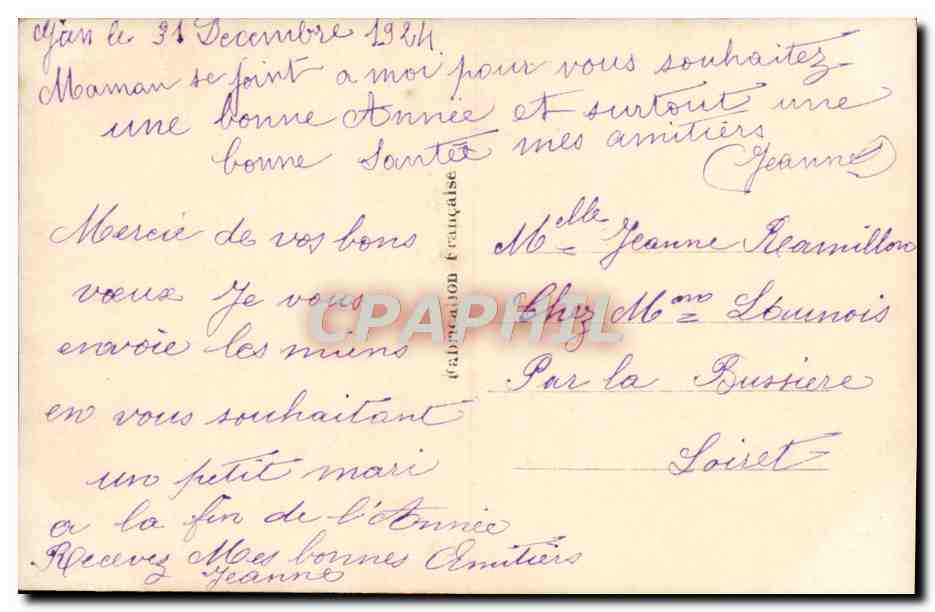 Gien le 31 Decembre 1924
Maman se joint a moi pour vous souhaitez
une bonne Année et surtout une
bonne Santée mes amitiers
(Jeanne)
Mercie de vos bons
vœux Je vous
envoie les miens
en vous souhaitant
un petit mari
a la fin de l'Année
Recevez Mes bonnes Amitiers
Jeanne
Fabrication Française
Mlle Jeanne Ramillon
Chez Mme Launois
Par la Bussiere
Loiret
CPAPHIL